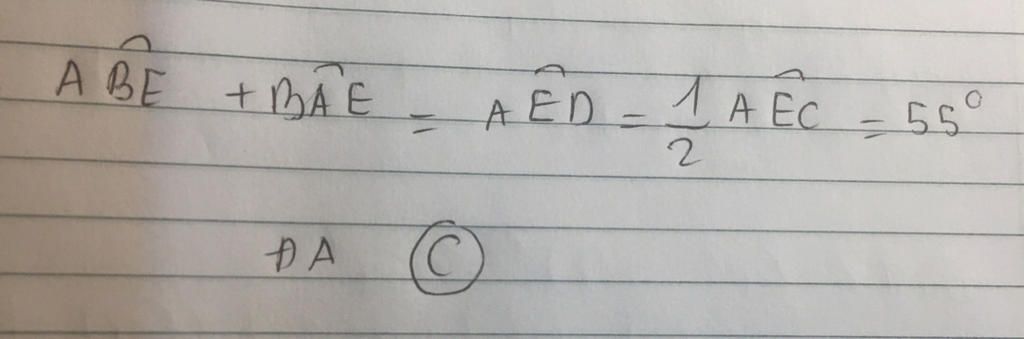 AB̂E + BÂE = AÊD = 1/2 AÊC = 55°
ĐA C